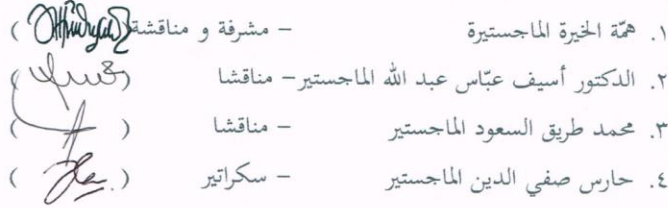 ١. همّة الخيرة الماجستيرة – مشرفة و مناقشة ( )
٢. الدكتور أسيف عبّاس عبد الله الماجستير – مناقشا ( )
٣. محمد طريق السعود الماجستير – مناقشا ( )
٤. حارس صفي الدين الماجستير – سكراتير ( )